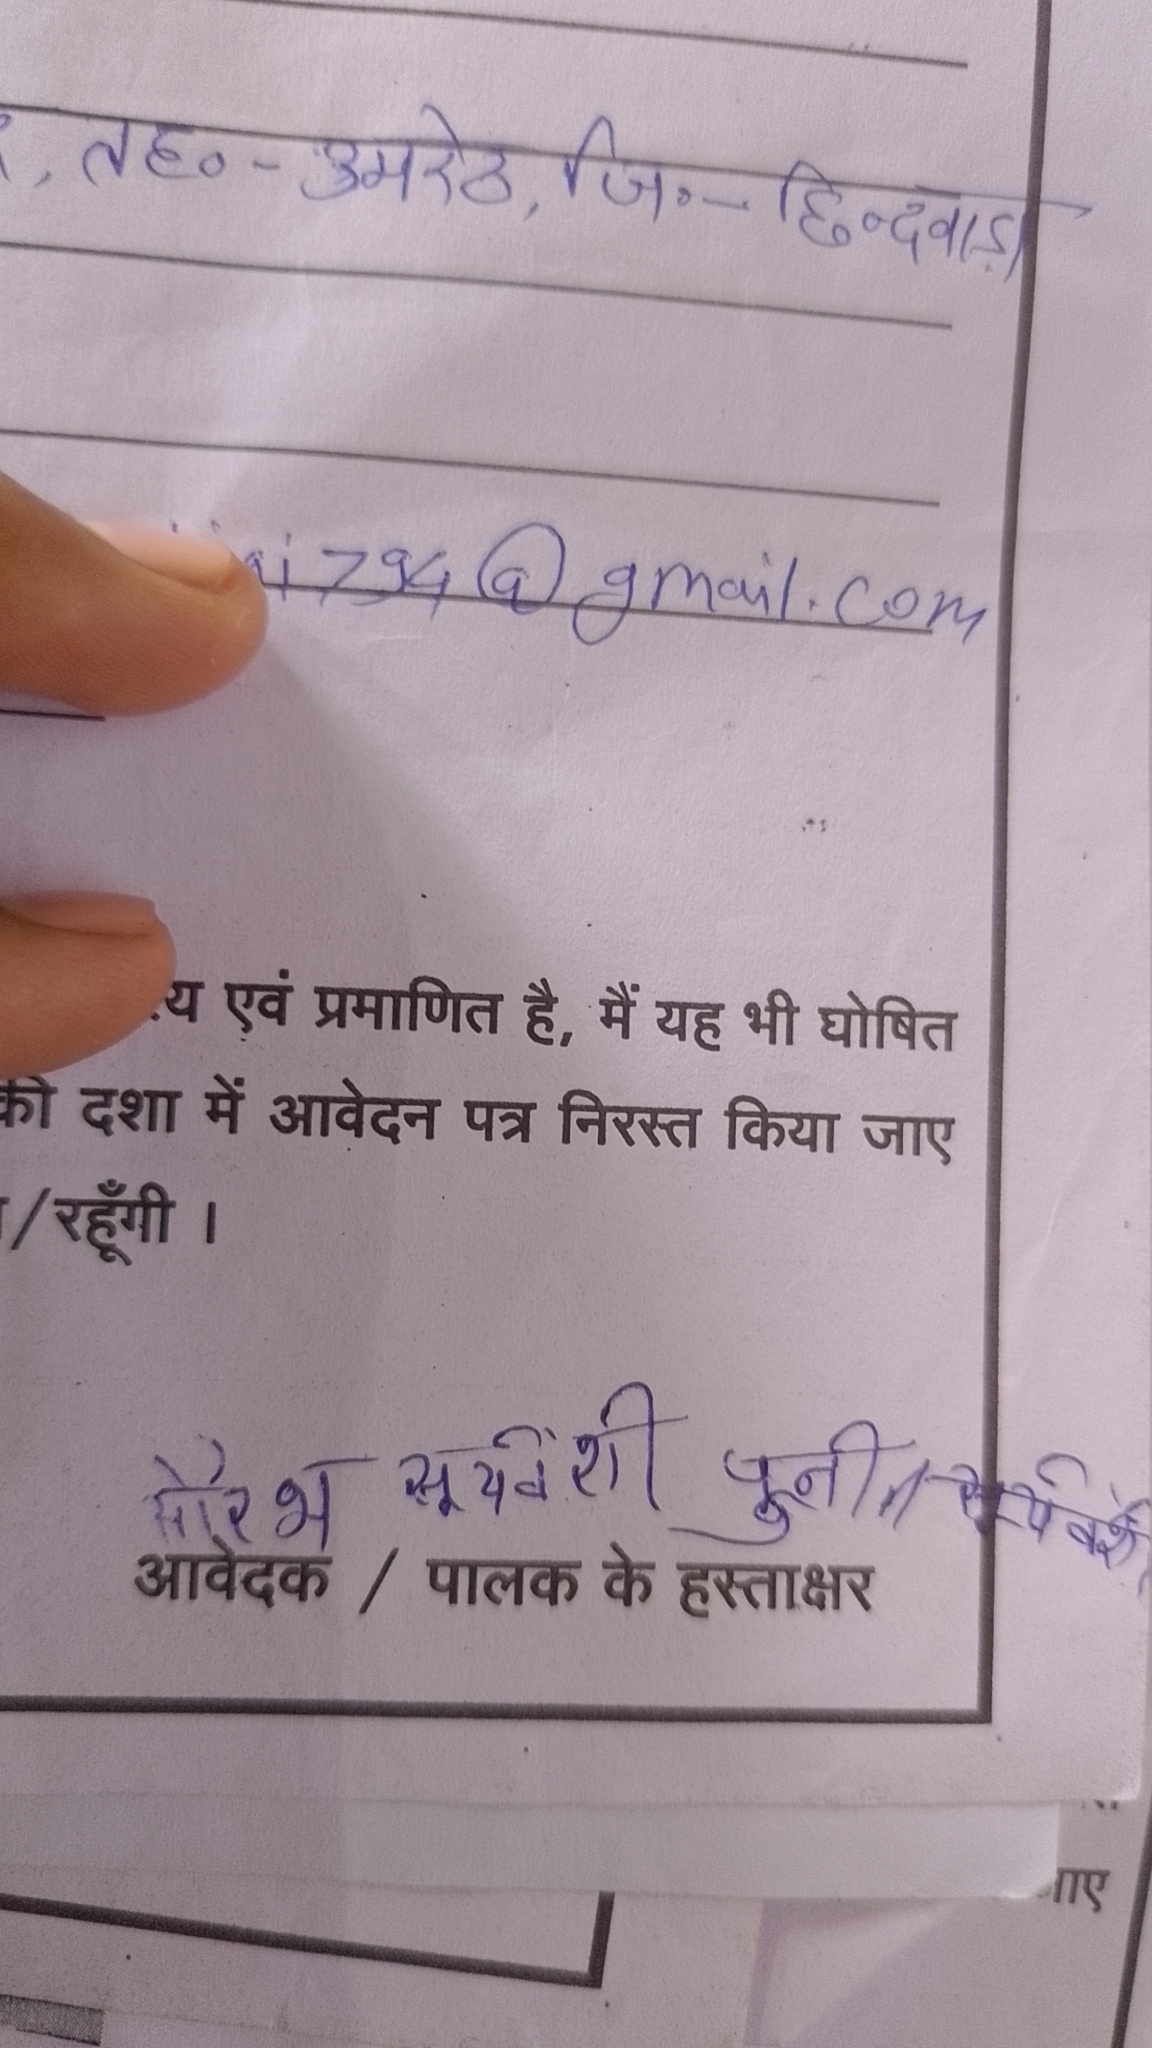 , तह०- उमरेठ, जि०- छिन्दवाड़ा
i794@gmail.com
एवं प्रमाणित है, मैं यह भी घोषित
की दशा में आवेदन पत्र निरस्त किया जाए
/रहूँगी ।
सौरभ सूर्यवंशी पुनीत सूर्यवंशी
आवेदक / पालक के हस्ताक्षर